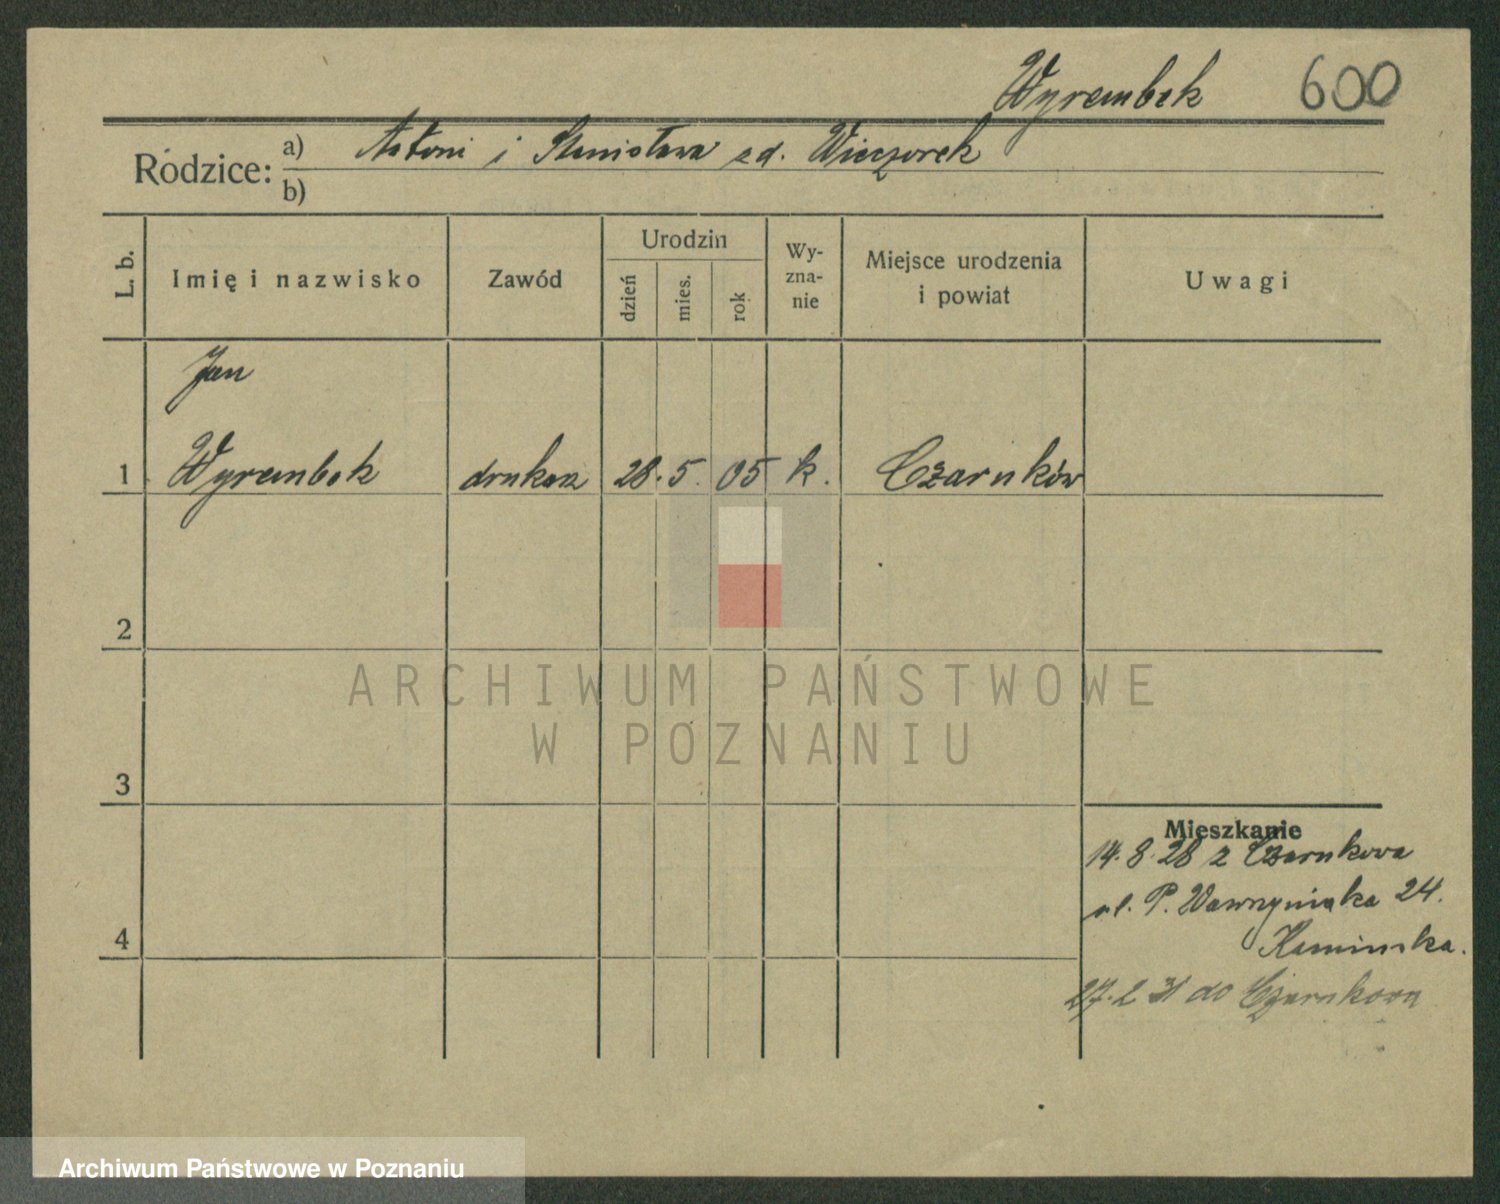 Wyrembek 600
Rodzice: a) Antoni i Stanisława zd. Wieczorek
b)
L. b. Imię i nazwisko Zawód Urodzin dzień mies. rok Wy-zna-nie Miejsce urodzenia i powiat Uwagi
Jan
1 Wyrembek drukarz 28. 5. 05 k. Czarnków
2
ARCHIWUM PAŃSTWOWE
W POZNANIU
3
Mieszkanie
14. 8. 28 z Czarnkowa
ul. P. Wawrzyniaka 24.
4
Kaminska.
27. 2 31 do Czarnkowa
Archiwum Państwowe w Poznaniu